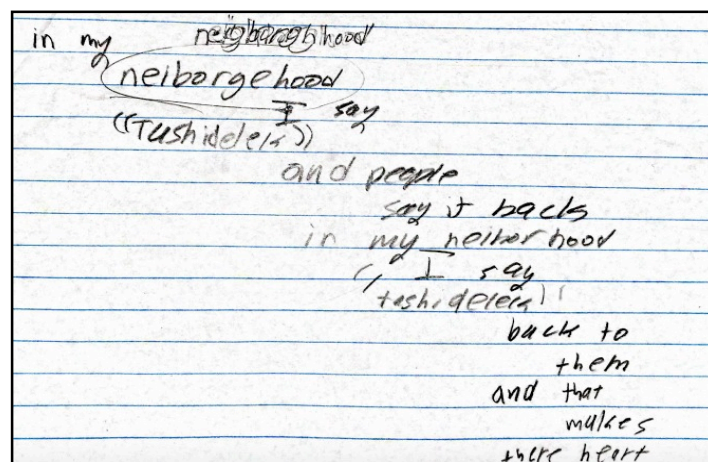 in my
neiborgehood
I say
((Tushidelek))
and people
say it back
in my neiborhood
I say
tashidelek))
back to
them
and that
makes
there heart